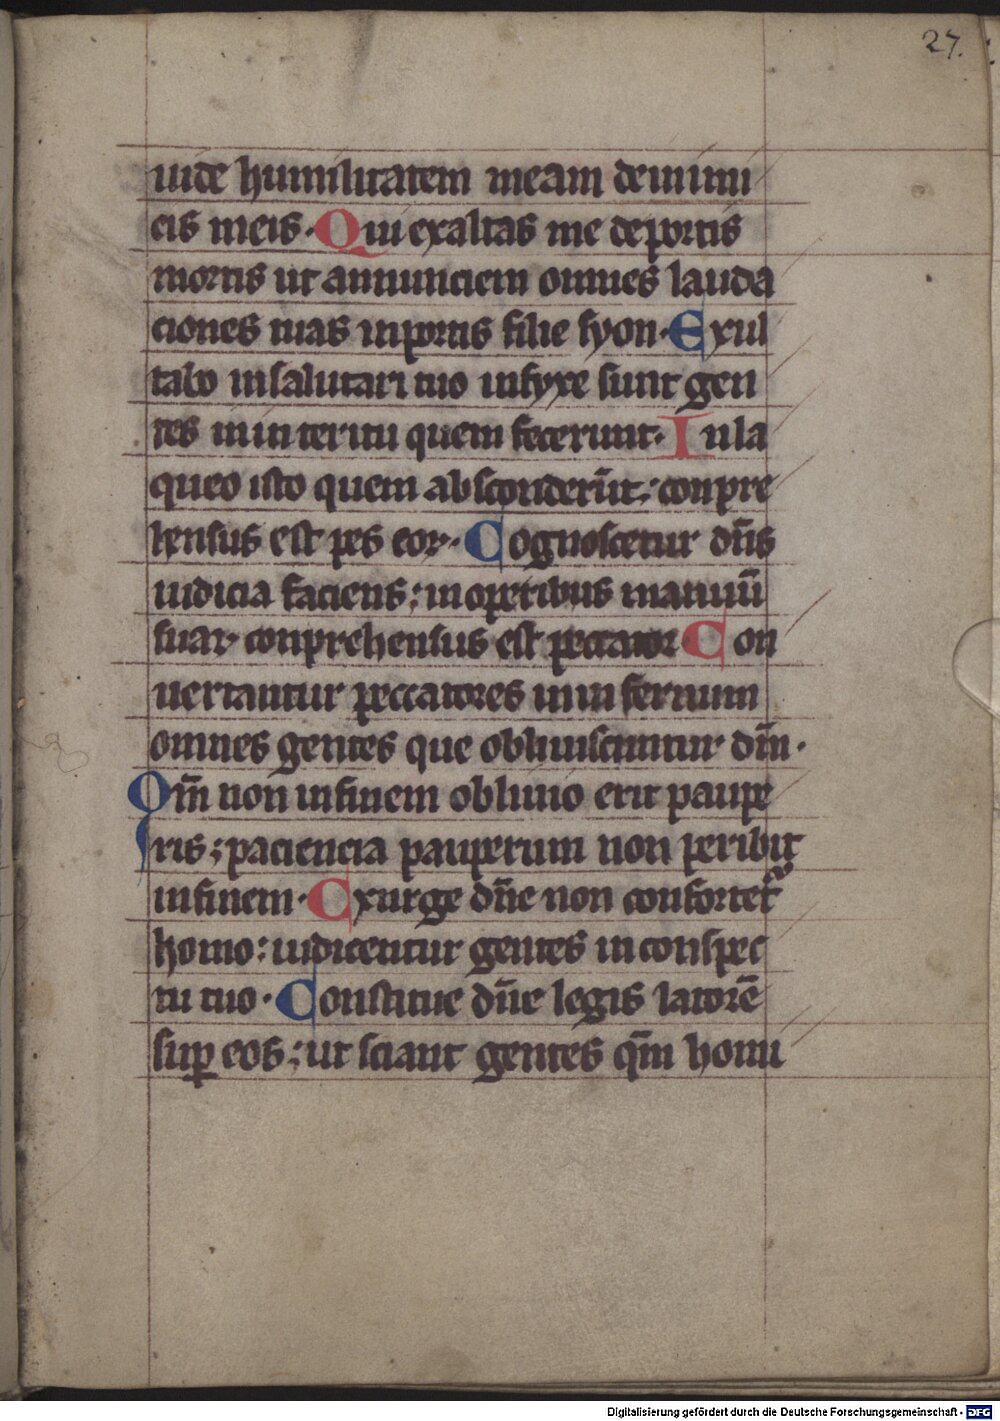 27.
uide humilitatem meam deinimi
cis meis. Qui exaltas me deportis
mortis ut annunciem omnes lauda
ciones tuas inportis filie syon. Exul
tabo insalutari tuo infyxe sunt gen
tes inin teritu quem fecerunt. Inla
queo isto quem absconderūt: conpre
hensus est pes eoꝝ. Cognoscetur dn̄s
iudicia faciens: inoperibus manuū
suaꝝ conprehensus est peccator Con
uertantur peccatores inin fernum
omnes gentes que obliuiscuntur dm̄.
Qm̄ non infinem obliuio erit paupe
ris: paciencia pauperum non peribit
infinem. Exurge dn̄e non confortet᷑
homo: iudicentur gentes in conspec
tu tuo. Constitue dn̄e legis latorē
suꝑ eos: ut sciant gentes qm̄ homi
Digitalisierung gefördert durch die Deutsche Forschungsgemeinschaft - DFG